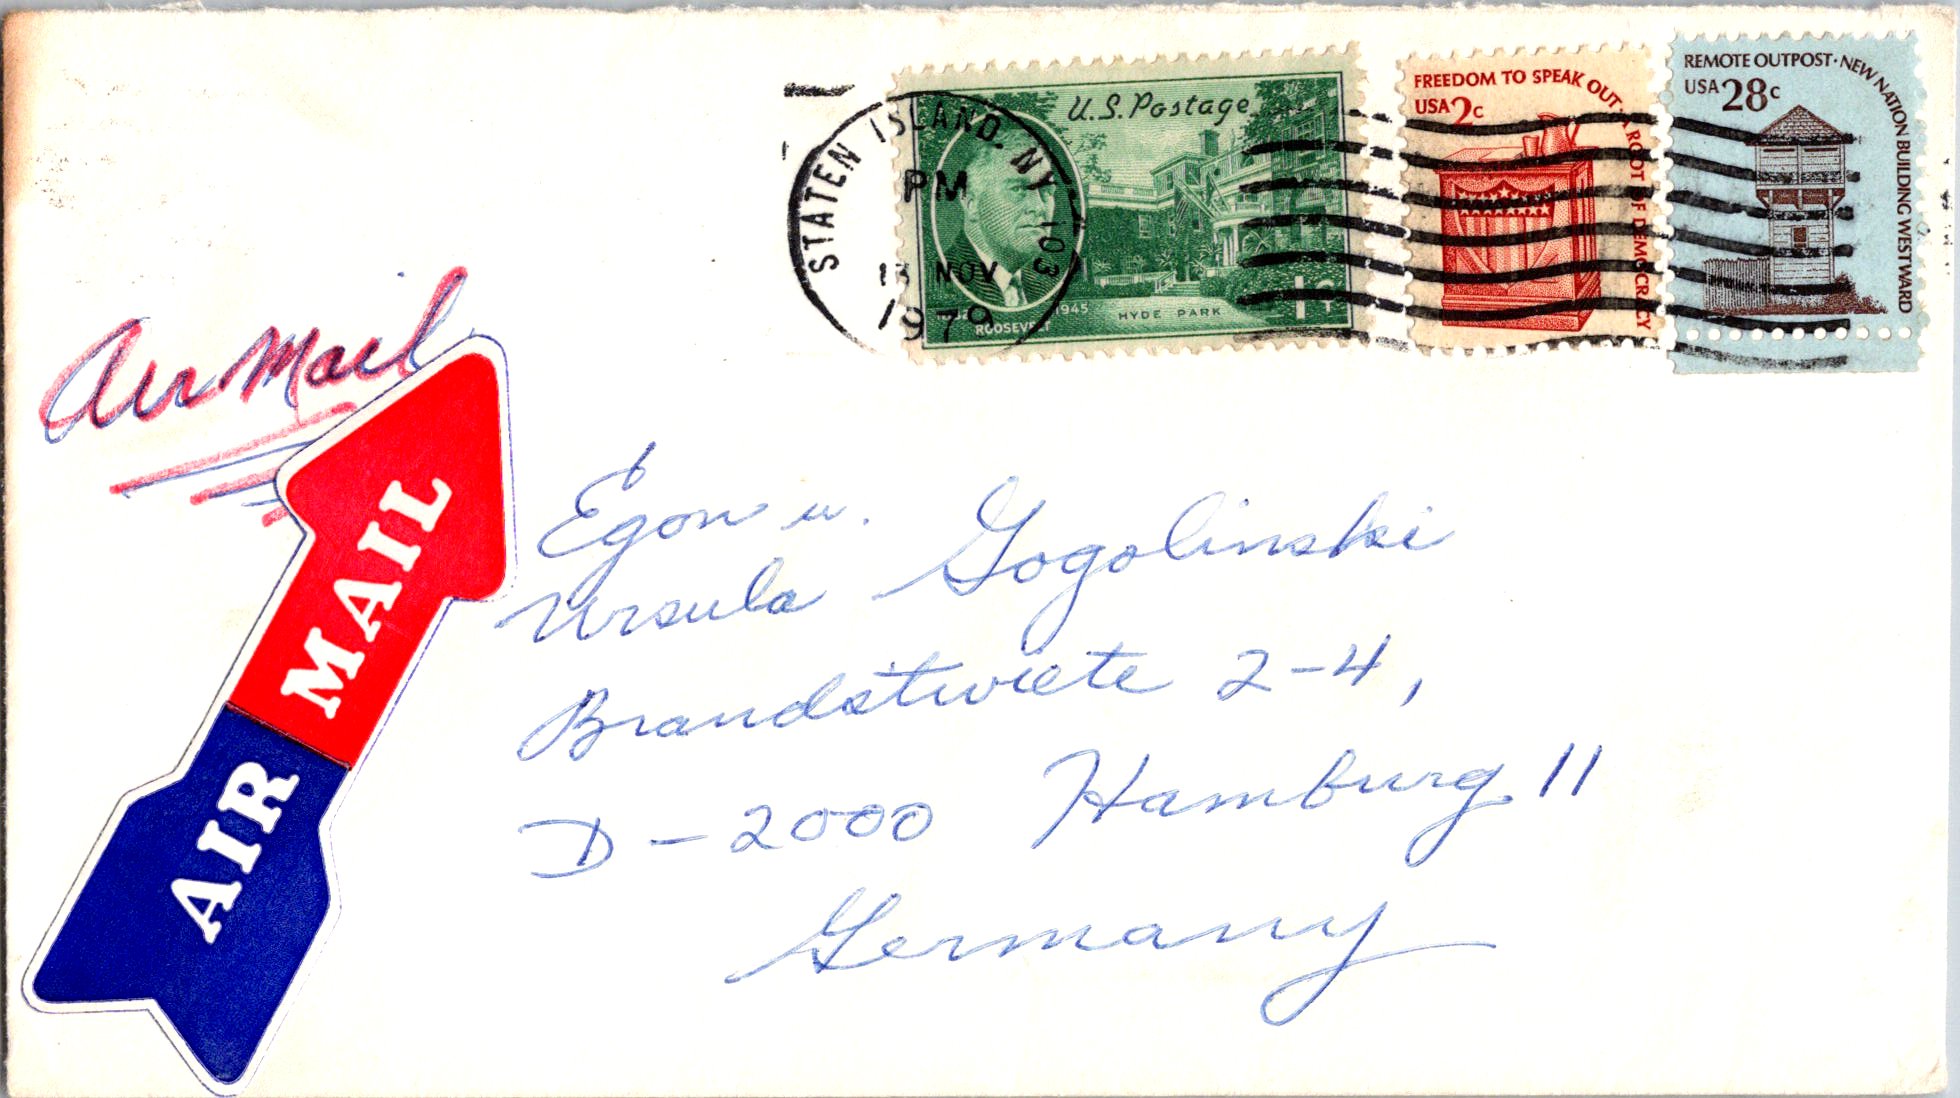 STATEN ISLAND. NY 103
PM
13 NOV
1979
U.S. Postage
1945
HYDE PARK
ROOSEVELT
1¢
FREEDOM TO SPEAK OUT · A ROOT OF DEMOCRACY
USA 2c
REMOTE OUTPOST · NEW NATION BUILDING WESTWARD
USA 28c
Air Mail
AIR MAIL
Egon u.
Ursula Gogolinski
Brandstwiete 2-4,
D-2000 Hamburg 11
Germany